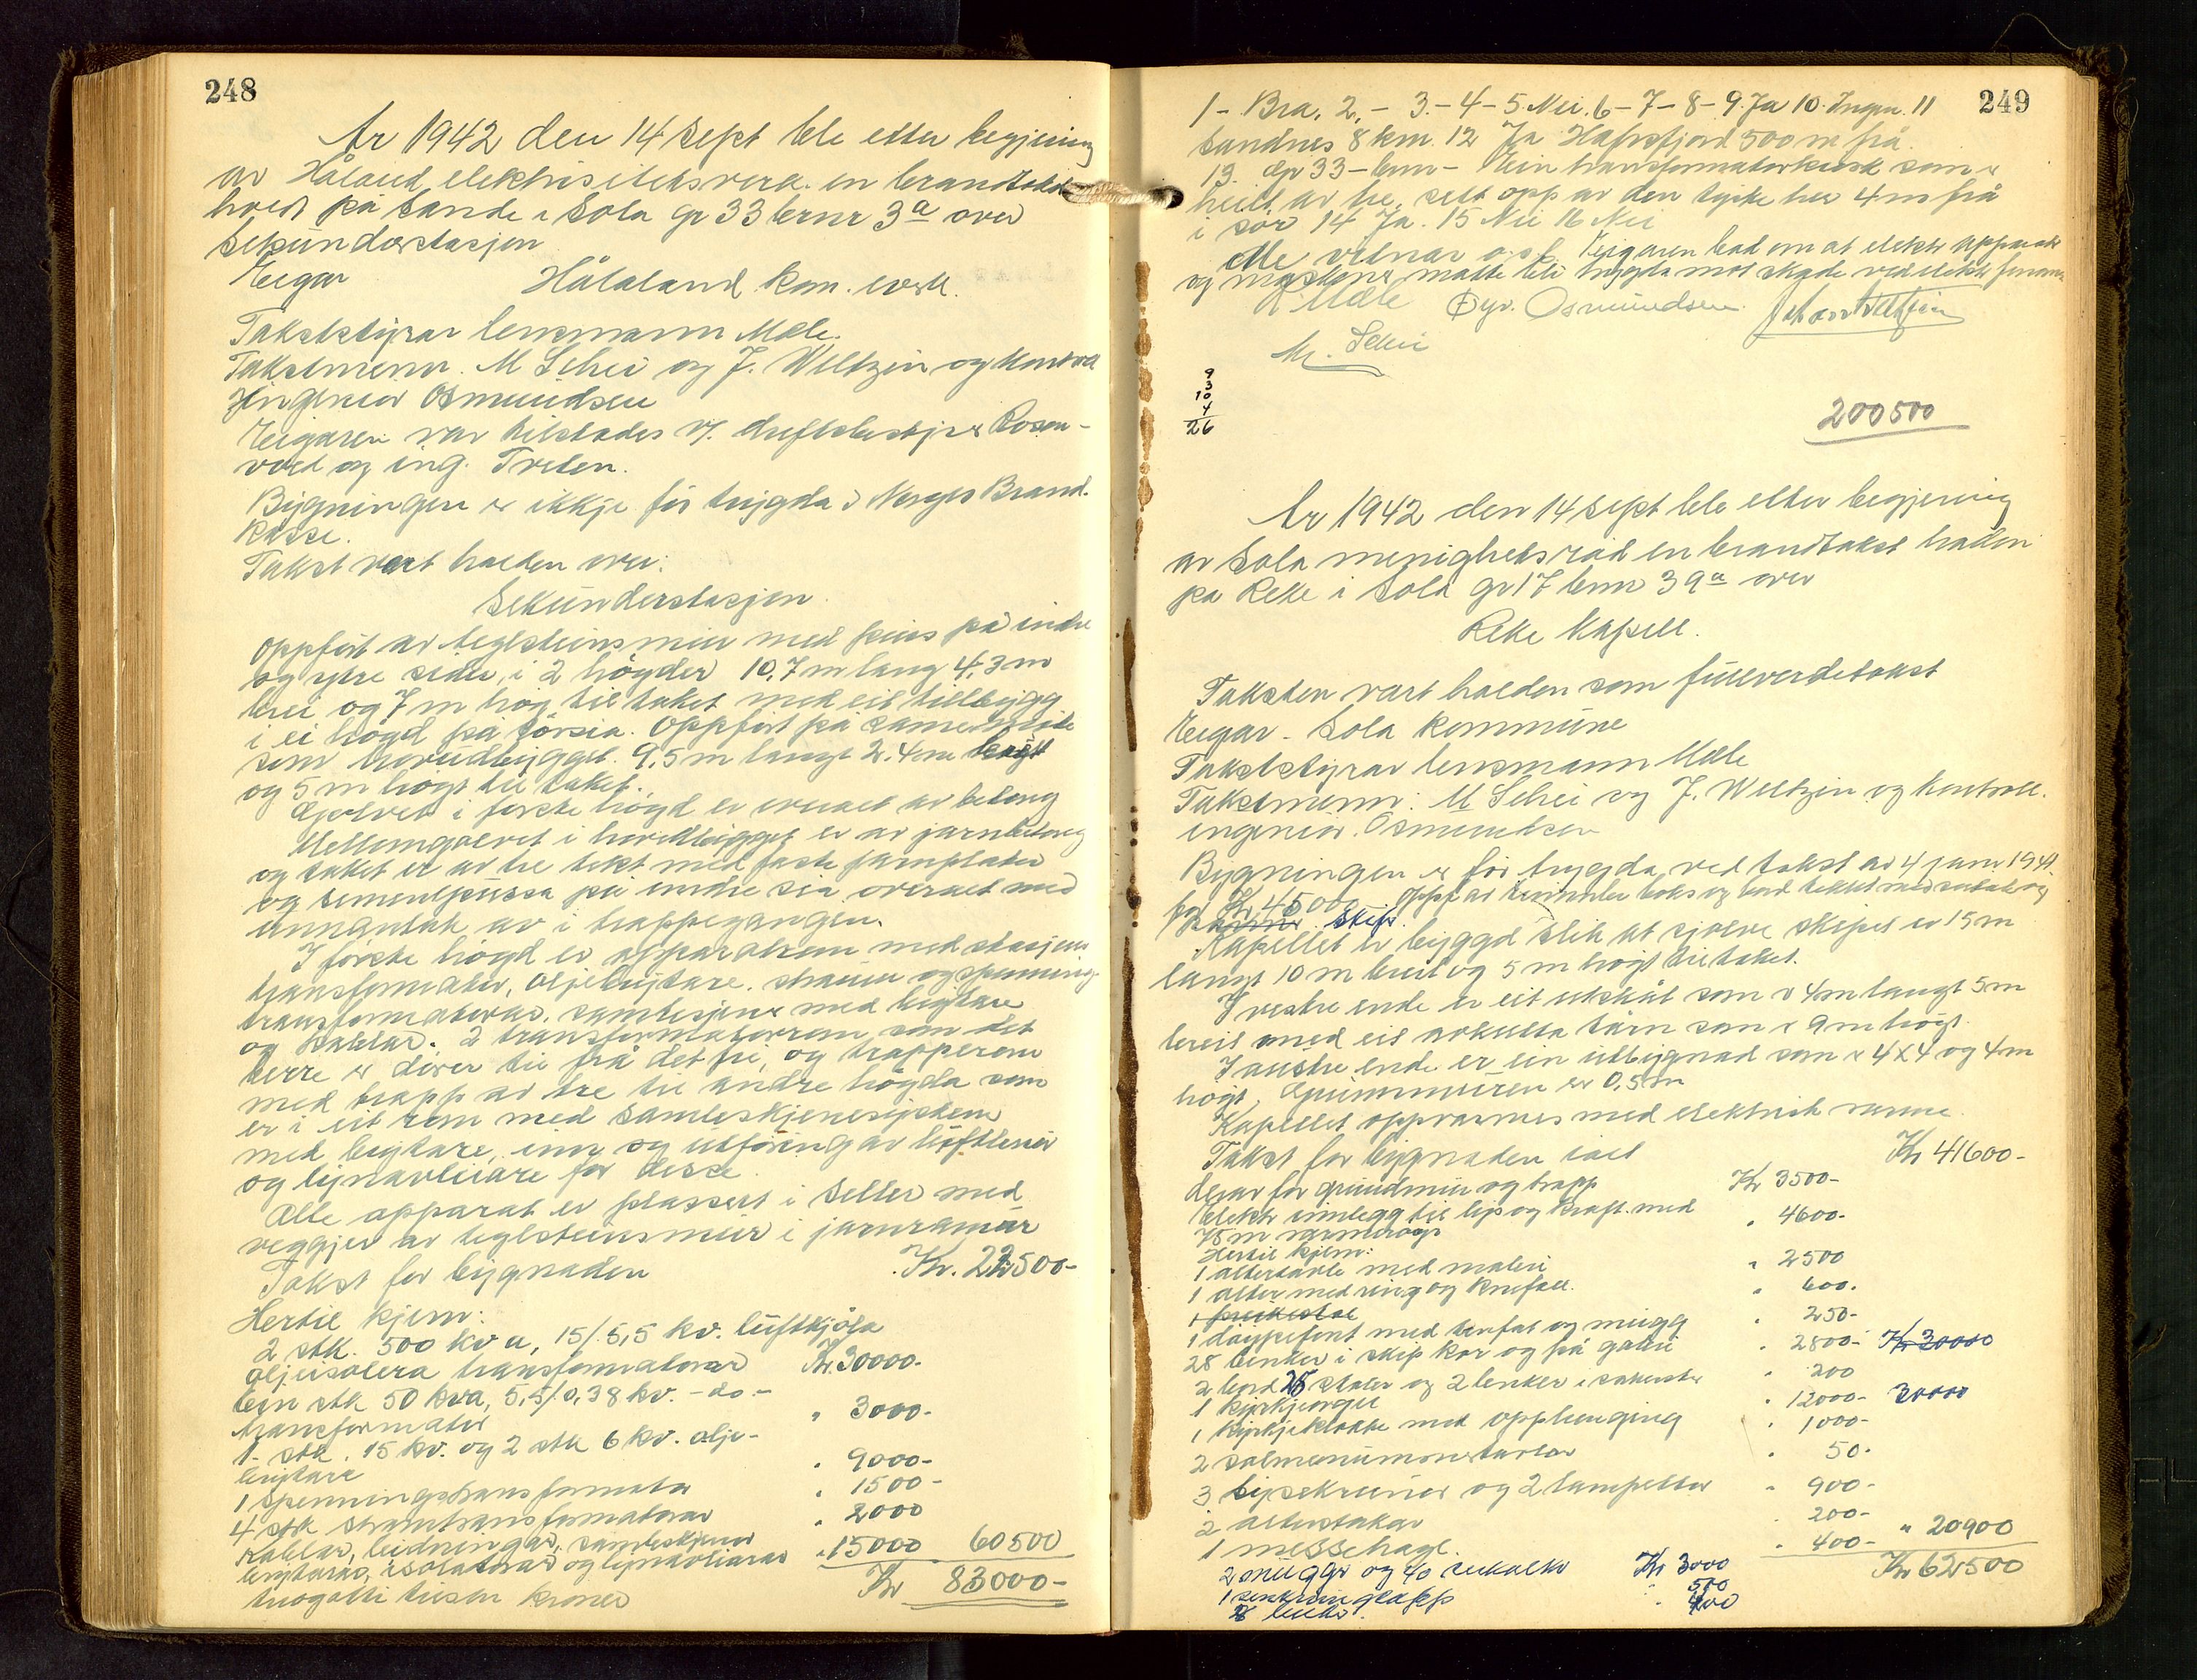 248
År 1942 den 14 Sept ble etter begjering
av Håland elektrisitetsverk en brandtakst
holdt på Sande i Sola gr 33 brnr 3ª over
Sekundærstasjon
Eigar Håland kom. everk.
Takststyrar lensmann Mæle.
Takstmenn. M Schei og J. Weltzin og kontroll
ingeniør Osmundsen
Eigaren var tilstades v/ driftsbestyrer Rosen-
vold og ing. Treten.
Bygningen er ikkje før trygda i Norges Brand-
kasse.
Takst vart halden over:
Sekunderstasjon.
Oppført av teglsteinsmur med puss på indre
og ytre sider, i 2 høgder 10,7 m lang 4,3 m
brei og 7 m høg til taket med eit tilbygg
i ei høgd på sørsia. Oppført på same måte
som hovudbygget. 9,5 m langt 2,4 m breidt
og 5 m høgt til taket.
Golvet i første høgd er overalt av betong
Mellomgolvet i hovedbygget er av jarnbetong
og taket er av tre tekt med faste jarnplater
og sementpussa på indre sia overalt med
unnantak av i trappegangen.
I første høgd er apparatrom med stasjons
transformator, oljebrytare, straum og spennings-
transformatorar, samlesjener med brytare
og kablar. 2 transformatorrom som det
berre er dører til frå det fri, og trapperom
med trapp av tre til andre høgda som
er i eit rom med samleskjenesystem
med brytare, inn og utføring av luftliner
og lynavleiare for desse.
Alle apparat er plassert i Seller med
veggjer av teglsteinsmur i jarnramar
Takst for bygnaden Kr. 22500-
Hertil kjem:
2 stk. 500 kva, 15/5,5 kv. luftkjøla
oljeisolera transformatorar Kr. 30000-
Ein stk 50 kva, 5,5/0,38 kv. - do. -
transformator " 3000-
1 stk. 15 kv. og 2 stk 6 kv. olje-
brytare " 9000-
1 spenningstransformator " 1500-
4 stk straumtransformatorar " 2000
Kablar, leidningar, samleskjener
brytarar, isolatorar og lynavleiarar " 15000 60500
Kr 83000-
trogotti tusen kroner
249
1 - Bra. 2. - 3. - 4 - 5 Nei. 6 - 7 - 8 - 9. Ja 10. Ingen. 11
Sandnes 8 km. 12 Ja Hafrsfjord 500 m frå.
13. Gr 33 - brnr - Ein transformatorkiosk som er
heilt av tre, sett opp av den tyske her 4 m frå
i sør 14 Ja. 15 Nei 16 Nei
Me vitnar o.s.f. Eigaren bad om at elektr apparater
og maskiner måtte bli trygda mot skade ved elektr fenomen
Mæle Gyv. Osmundsen. Johan Weltzin
M. Schei
9
3
10
4
26
200500
År 1942 den 14 Sept ble etter begjering
av Sola menighetsråd en brandtakst halden
på Reke i Sola gr 17 brnr 39ª over
Reke Kapell.
Taksten vart halden som fullverdetakst
Eigar - Sola kommune
Takststyrar lensmann Mæle
Takstmenn: M Schei og J. Weltzin og kontroll.
ingeniør. Osmundsen
Bygningen er før trygda ved takst av 4 janr 1941.
for Kr 45000 Oppf. av tømmer
skifer.
Kapellet er byggd slik at sjølve skipet er 15 m
langt 10 m breit og 5 m høgt til taket.
I vestre ende er eit utskåt som er 4 m langt 5 m
breit med eit avkutta tårn som er 9 m høgt.
I austre ende er ein utbygnad som er 4 X 4 og 4 m
høgt. Grunnmuren er 0,5 m
Kapellet oppvarmes med elektrisk varme.
Takst for bygnaden i alt Kr 41600-
derav for grundmur og trapp Kr 3500-
Elektr innlegg til lys og kraft. med
75 m varmerør " 4600-
Hertil kjem:
1 altertavle med maleri " 2500
1 alter med ring og knefall. " 600.
1 preikestol
1 døypefont med tinfat og mugg " 250-
28 benker i skip kor og på galleri " 2800- Kr 20000
2 bord 25 stoler og 2 benker i sakresti " 200
1 kyrkjeorgel " 12000- 20000
1 kyrkjeklokke med opphenging " 1000-
2 salmenummertavler " 50-
3 lysekruner og 2 lampetter " 900-
2 alterstakar " 200-
1 messehagl. " 400- " 20900
Kr 62500
2 mugger og 40 Kr 3000
1 " 500
8 benker. " 400